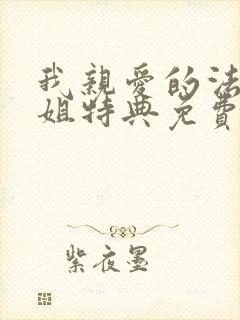 我親愛的法
姐特典免費
紫夜墨